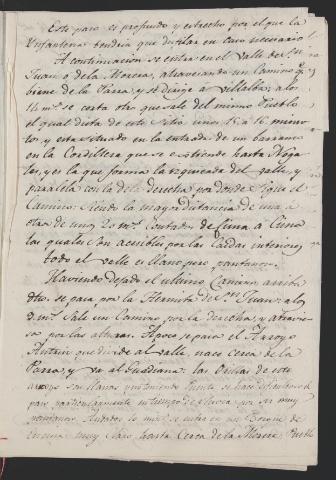 Este paso es profundo y estrecho por el que la
Ynfanteria tendria que disfilar en caso necesario
A continuacion se entra en el Valle de Sn
Juan, o de la Morera, atravesando un Camino qe
biene de la Parra, y se dirige a Villalba; a los
14 ms. se corta otro que sale del mismo Pueblo
el qual dista de este Sitio unos 15 a 16 minu
tos y esta situado en la entrada de un barranco
en la Cordillera que se estiende hasta Noga
les, y es la que forma la izquierda del valle, y
paralela con la de la derecha por donde sigue el
Camino; siendo la mayor distancia de una a
otra de unos 20 ms. Contados de Cima a Cima
las quales son acesibles por las Caidas interiores
todo el valle es llano pero pantanoso.
Haviendo dejado el ultimo Camino arriba
dho. se pasa por la Hermita de Sn Juan: a los
ms. Sale un Camino por la derecha, y atravie
sa por las alturas. Apoco se pasa el Arroyo
Antrin que divide al valle, nace Cerca de la
Parra, y va al Guadiana: las Orillas de este
arroyo son llanas
para particularmente en tiempo de lluvia por ser muy
pantanoso. Andados ms. se entra en un Bosque de
Encina muy Claro hasta Cerca de la Morera Pueblo